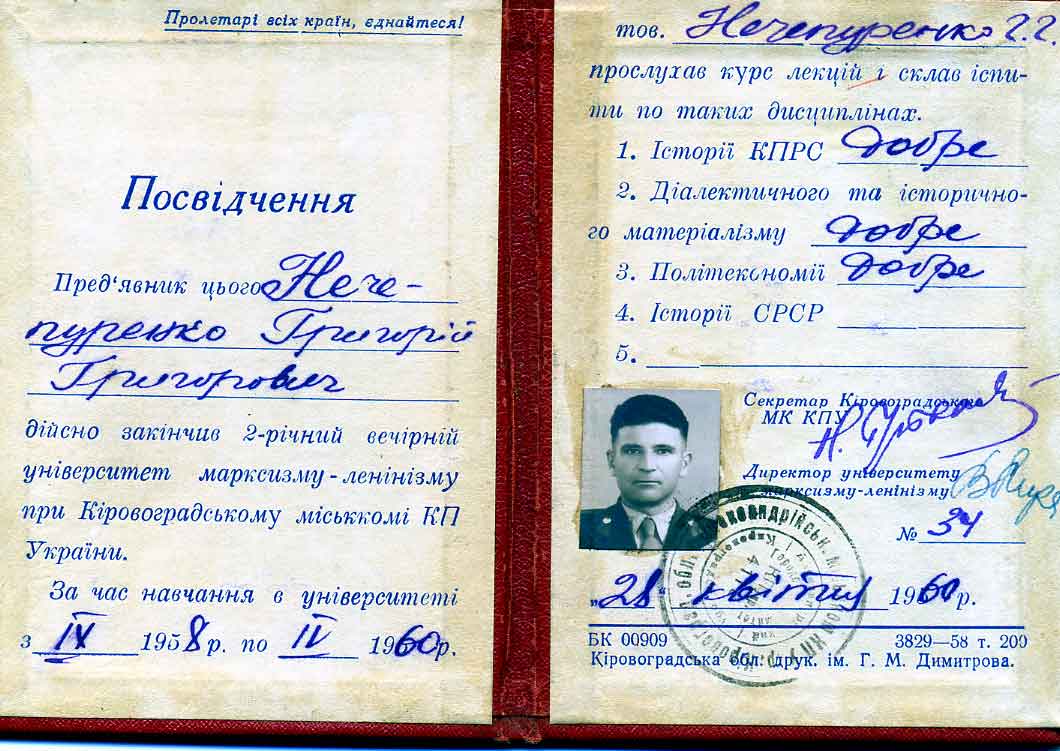 Пролетарі всіх країн, єднайтеся!
Посвідчення
Пред'явник цього Нече-
пуренко Григорій
Григорович
дійсно закінчив 2-річний вечірній
університет марксизму-ленінізму
при Кіровоградському міськкомі КП
України.
За час навчання в університеті
з IX 1958 р. по IV 1960 р.
тов. Нечепуренко Г. Г.
прослухав курс лекцій і склав іспи-
ти по таких дисциплінах.
1. Історії КПРС добре
2. Діалектичного та історично-
го матеріалізму добре
3. Політекономії добре
4. Історії СРСР
5.
Секретар Кіровоградського
МК КПУ
Директор університету
марксизму-ленінізму
№ 34
„28" квітня 1960 р.
БК 00909 3829—58 т. 200
Кіровоградська обл. друк. ім. Г. М. Димитрова.